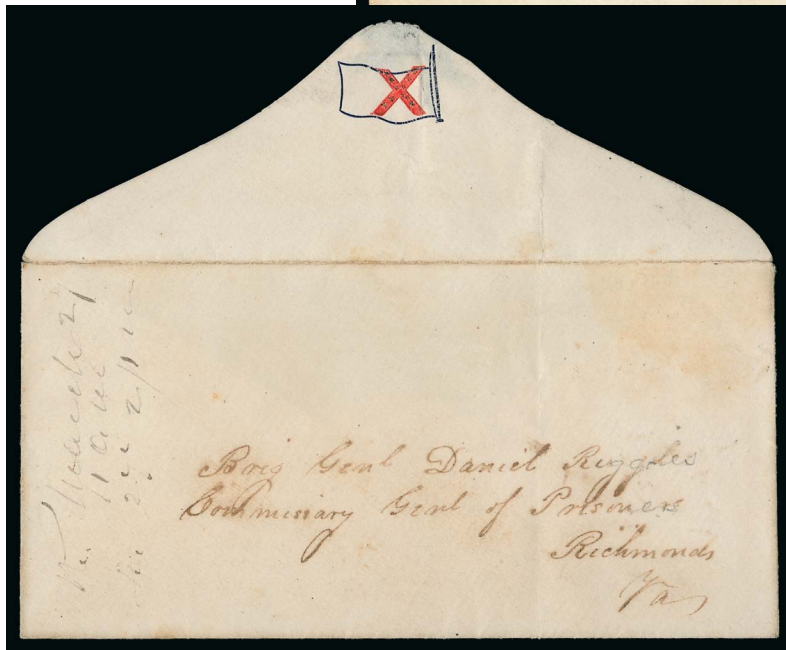 Brig Genl Daniel Ruggles
Commissary Genl of Prisoners
Richmond
Va
March 27